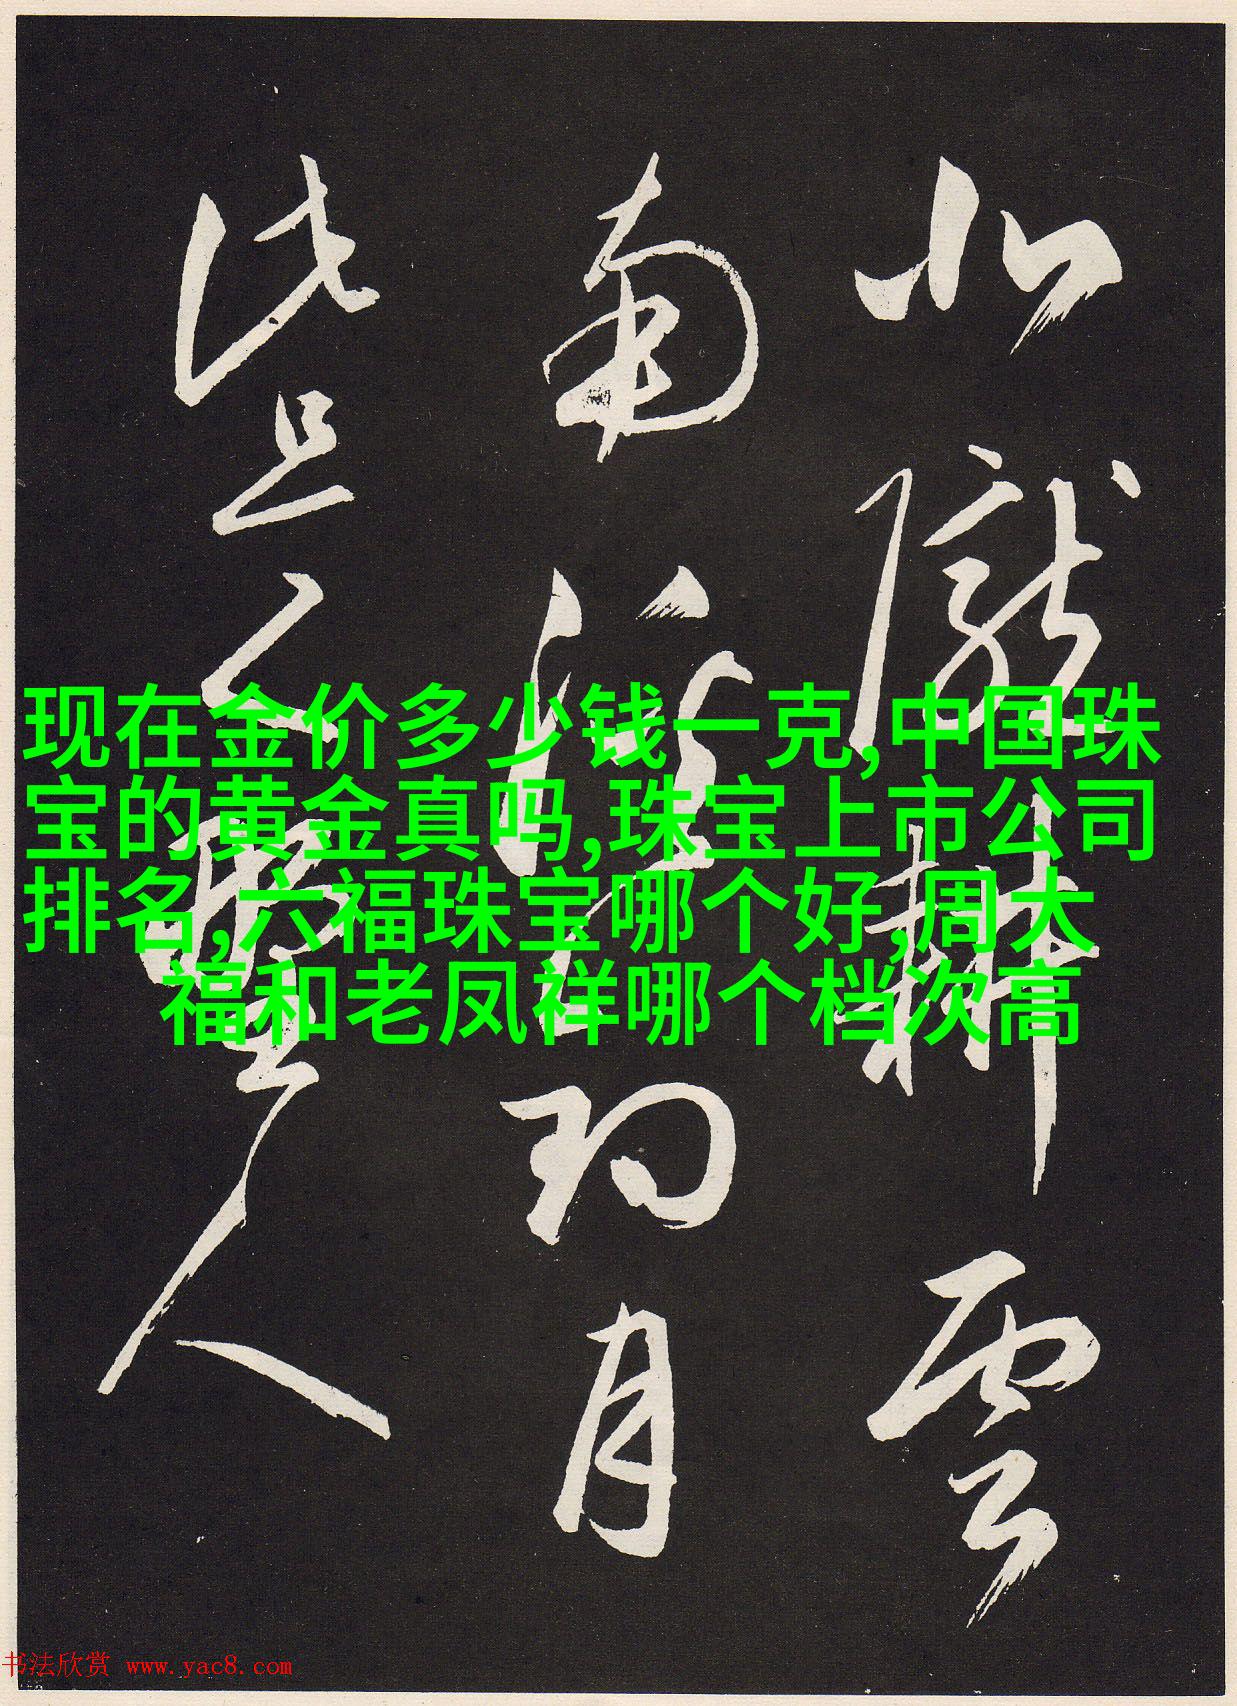 北隴耕雲
南溪釣月
此是野人
现在金价多少钱一克,中国珠
宝的黄金真吗,珠宝上市公司
排名,六福珠宝哪个好,周大
福和老凤祥哪个档次高
书法欣赏 www.yac8.com